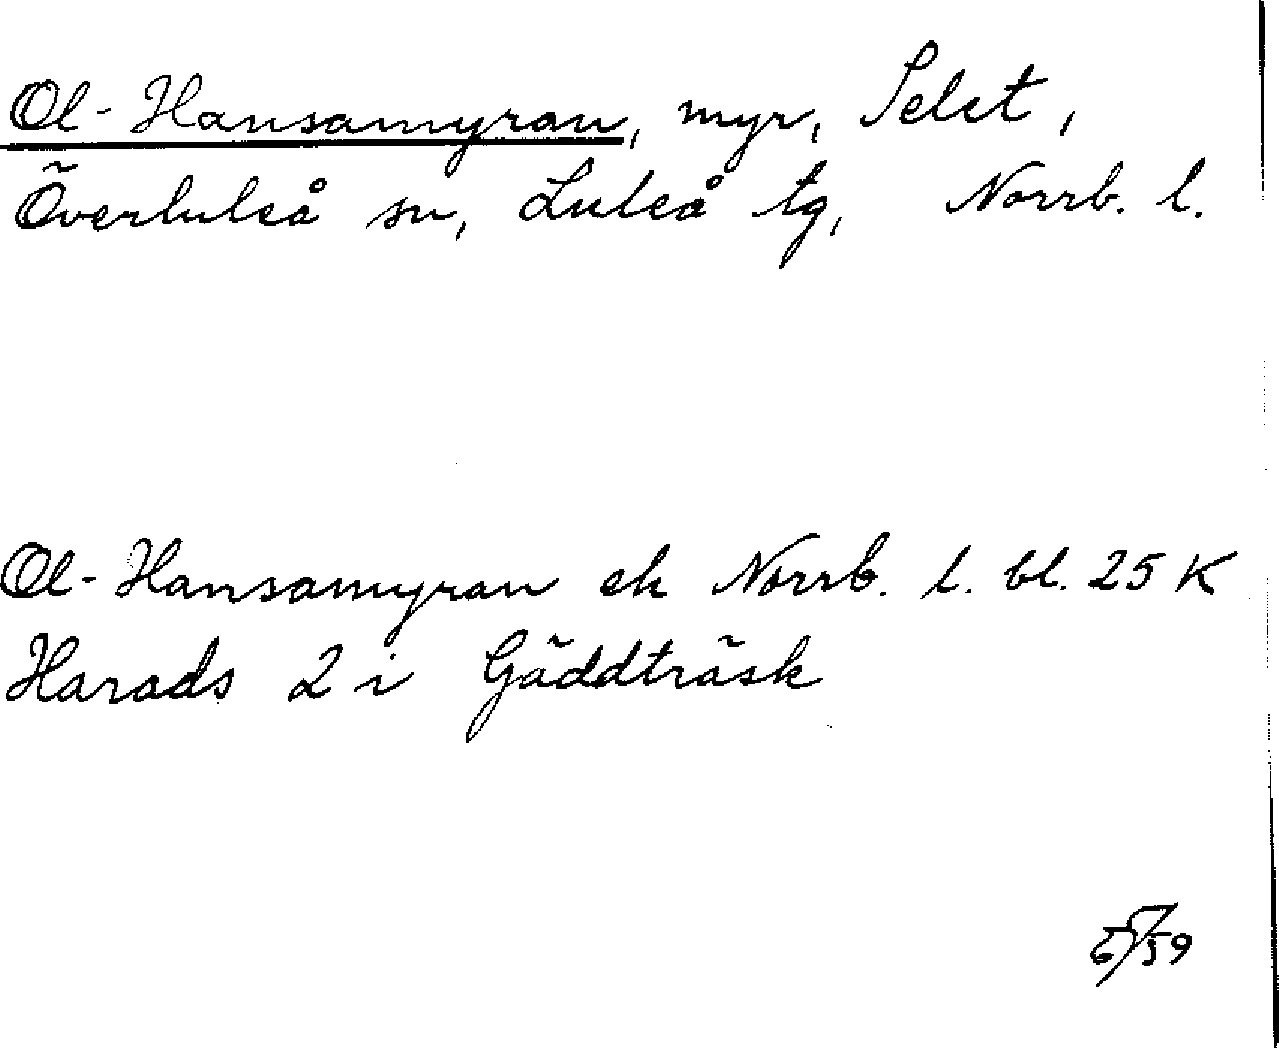 Ol-Hansamyran, myr, Selet,
Överluleå sn, Luleå tg, Norrb. l.
Ol-Hansamyran ek Norrb. l. bl. 25 K
Harads 2 i Gäddträsk